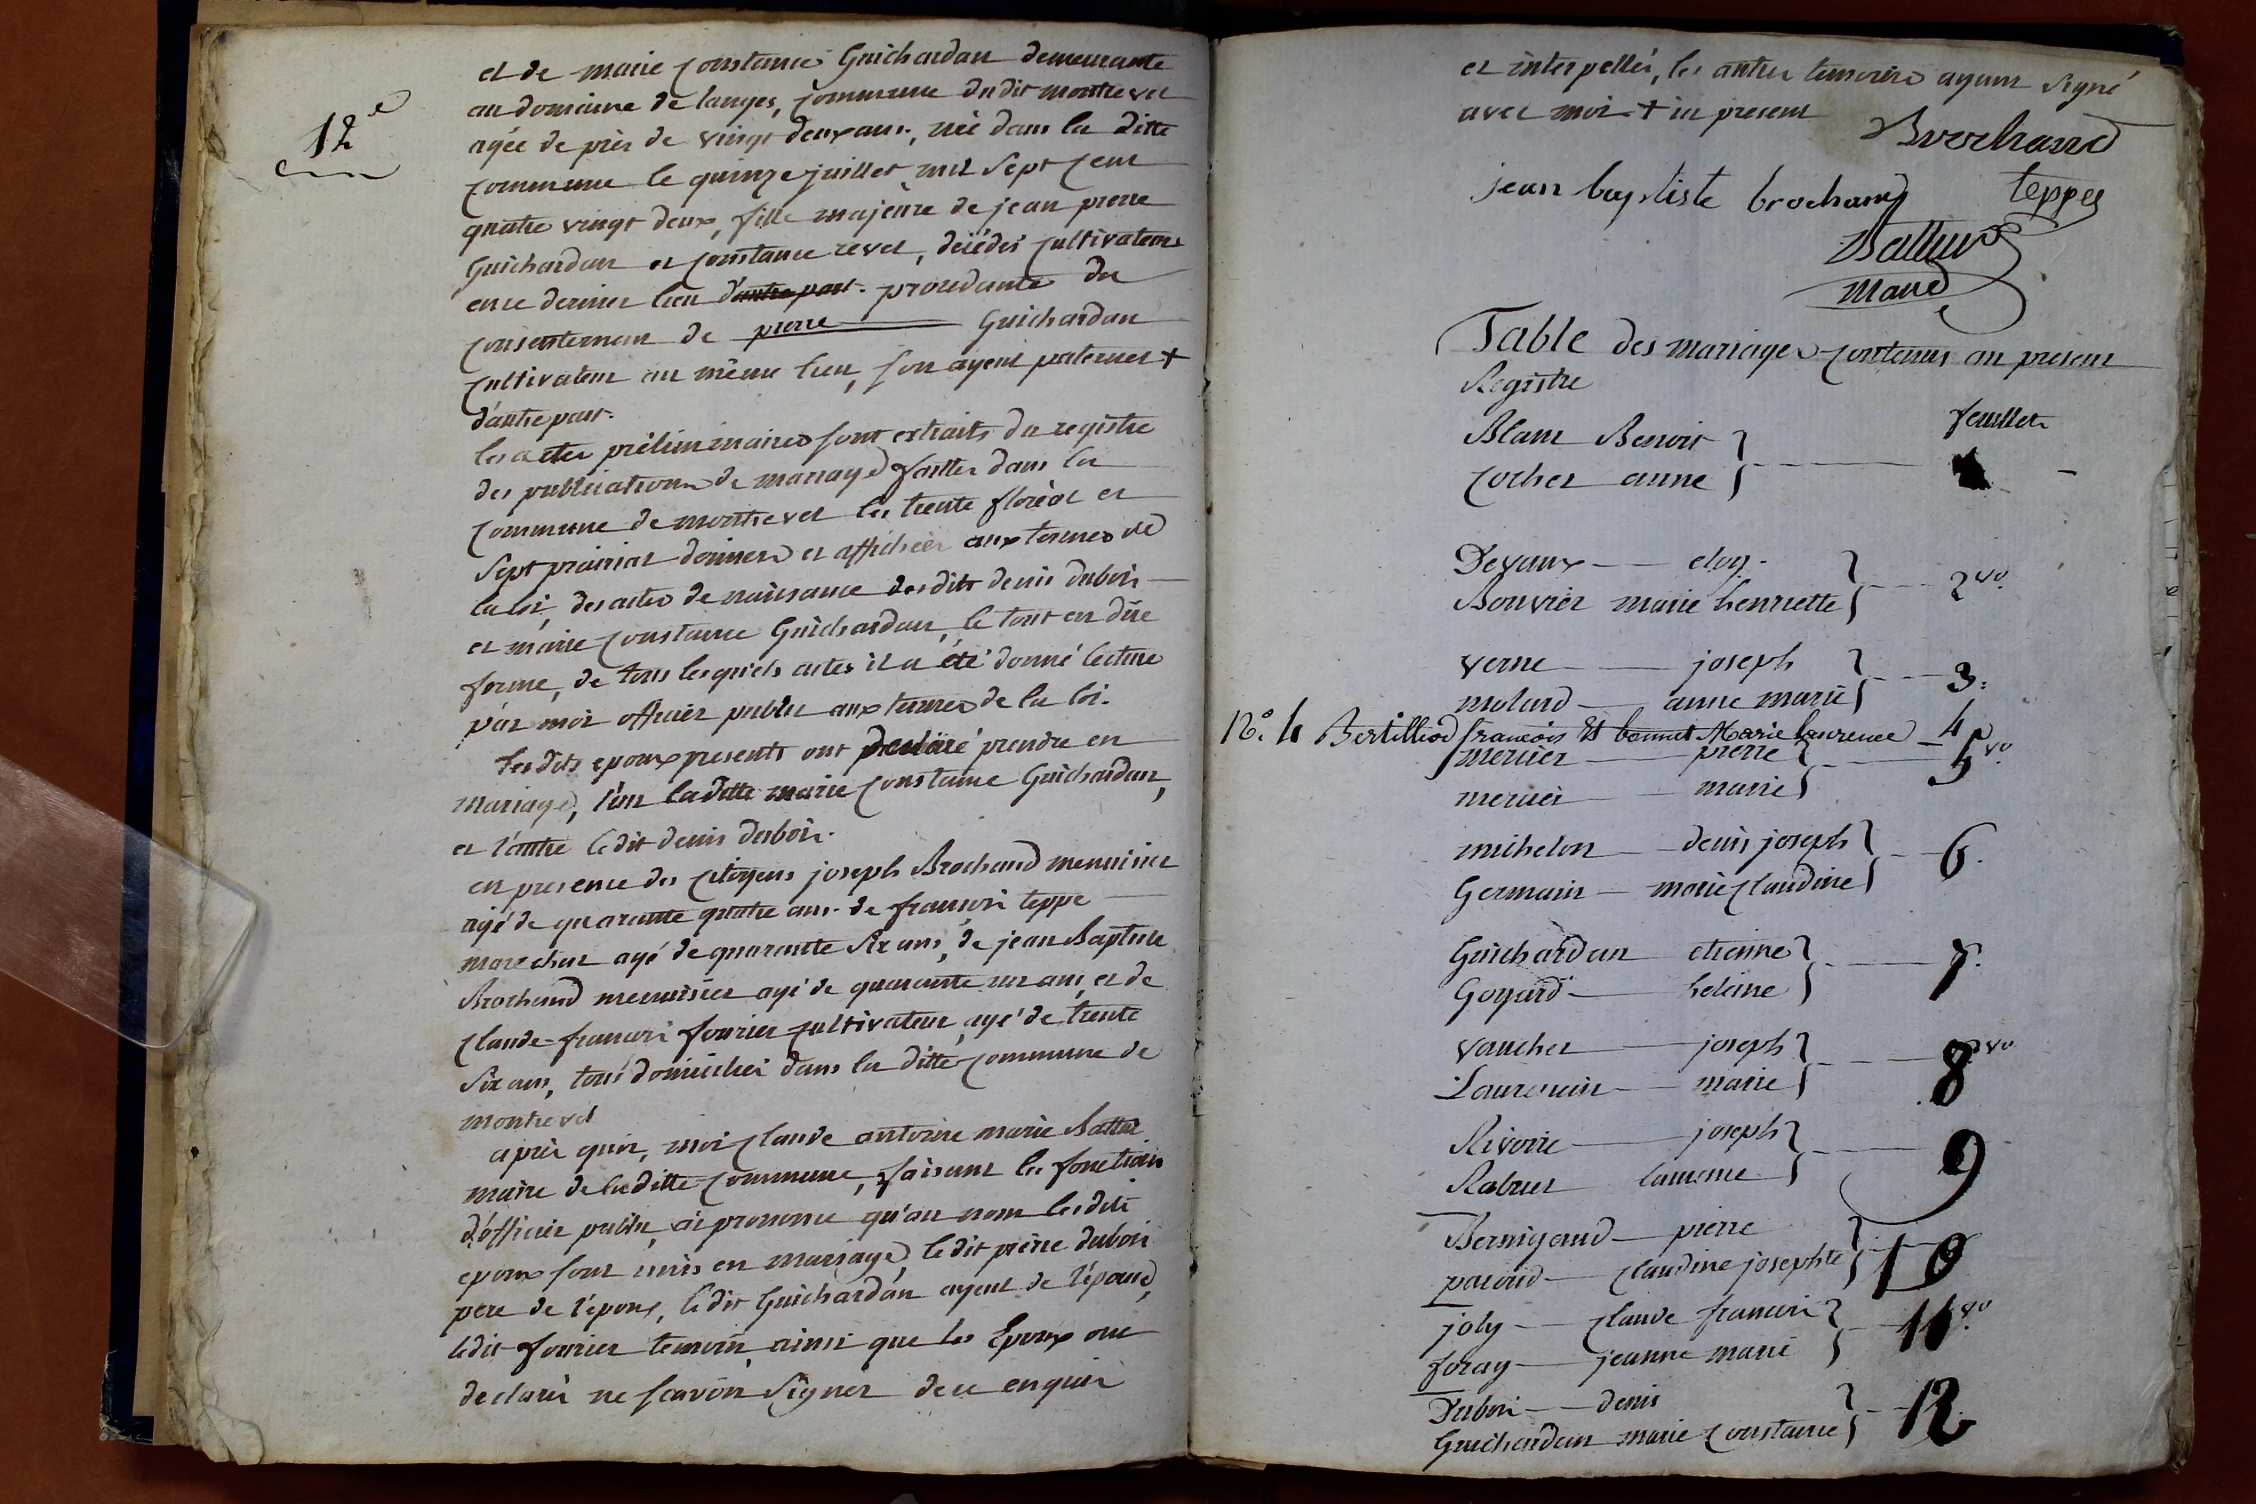 12e
et de marie constance Guichardan demeurante
au domaine de langes, commune du dit montrevel
agée de près de vingt deux ans, née dans la ditte
commune le quinze juillet mil sept cent
quatre vingt deux, fille majeure de jean pierre
Guichardan et constance revel, décédés cultivateurs
en ce dernier lieu d'autre part. procedante du
consentement de pierre Guichardan
cultivateur au même lieu, son ayeul paternel +
d'autre part.
les actes préliminaires sont extraits du registre
des publications de mariage faittes dans la
commune de montrevel les trente floréal et
sept prairial derniers et affichées aux termes de
la loi, des actes de naissance desdits denis dubois
et marie constance Guichardan, le tout en due
forme, de tous lesquels actes il a été donné lecture
par moi officier public aux termes de la loi.
les dits epoux presents ont declaré prendre en
mariage, l'un laditte marie constance Guichardan,
et l'autre ledit denis dubois.
en presence des citoyens joseph Brochand menuisier
agé de quarante quatre ans. de francois teppe
marechal agé de quarante six ans, de jean Baptiste
Brochand menuisier agé de quarante un ans, et de
claude francois fourier cultivateur, agé de trente
six ans, tous domiciliés dans la ditte commune de
montrevel
après quoi, moi claude antoine marie
maire de laditte commune, faisant les fonctions
d'officier public, ai prononcé qu'au nom lesdits
epoux sont unis en mariage, ledit pierre dubois
pere de l'epoux, ledit Guichardan ayeul de l'épouse,
ledit fourier temoin ainsi que les Epoux ont
declaré ne scavoir signer de ce enquis
et interpellés, les autres temoins ayant signé
avec moi + ici present
Brochand
jean baptiste brochand teppe
maire
Table des mariages contenus au present
Registre
feuillet
Blanc Benoit
cocher anne
Devaux eloy.
Bouvier marie henriette 2 vo.
verne joseph
molard anne marie 3.
No. 4 Bertilliod françois Et bonnet Marie laurence 4
mercier pierre 5 vo.
mercier marie
michelon denis joseph
Germain marie claudine 6.
Guichardan etienne
Goyard heleine 7.
vaucher joseph 8 vo
Laurencin marie
Rivoire joseph 9
Rabuel
Bernigaud pierre
pacoud claudine josephte 10
joly claude francois 11 vo.
foray jeanne marie
Dubois denis
Guichardan marie constance 12